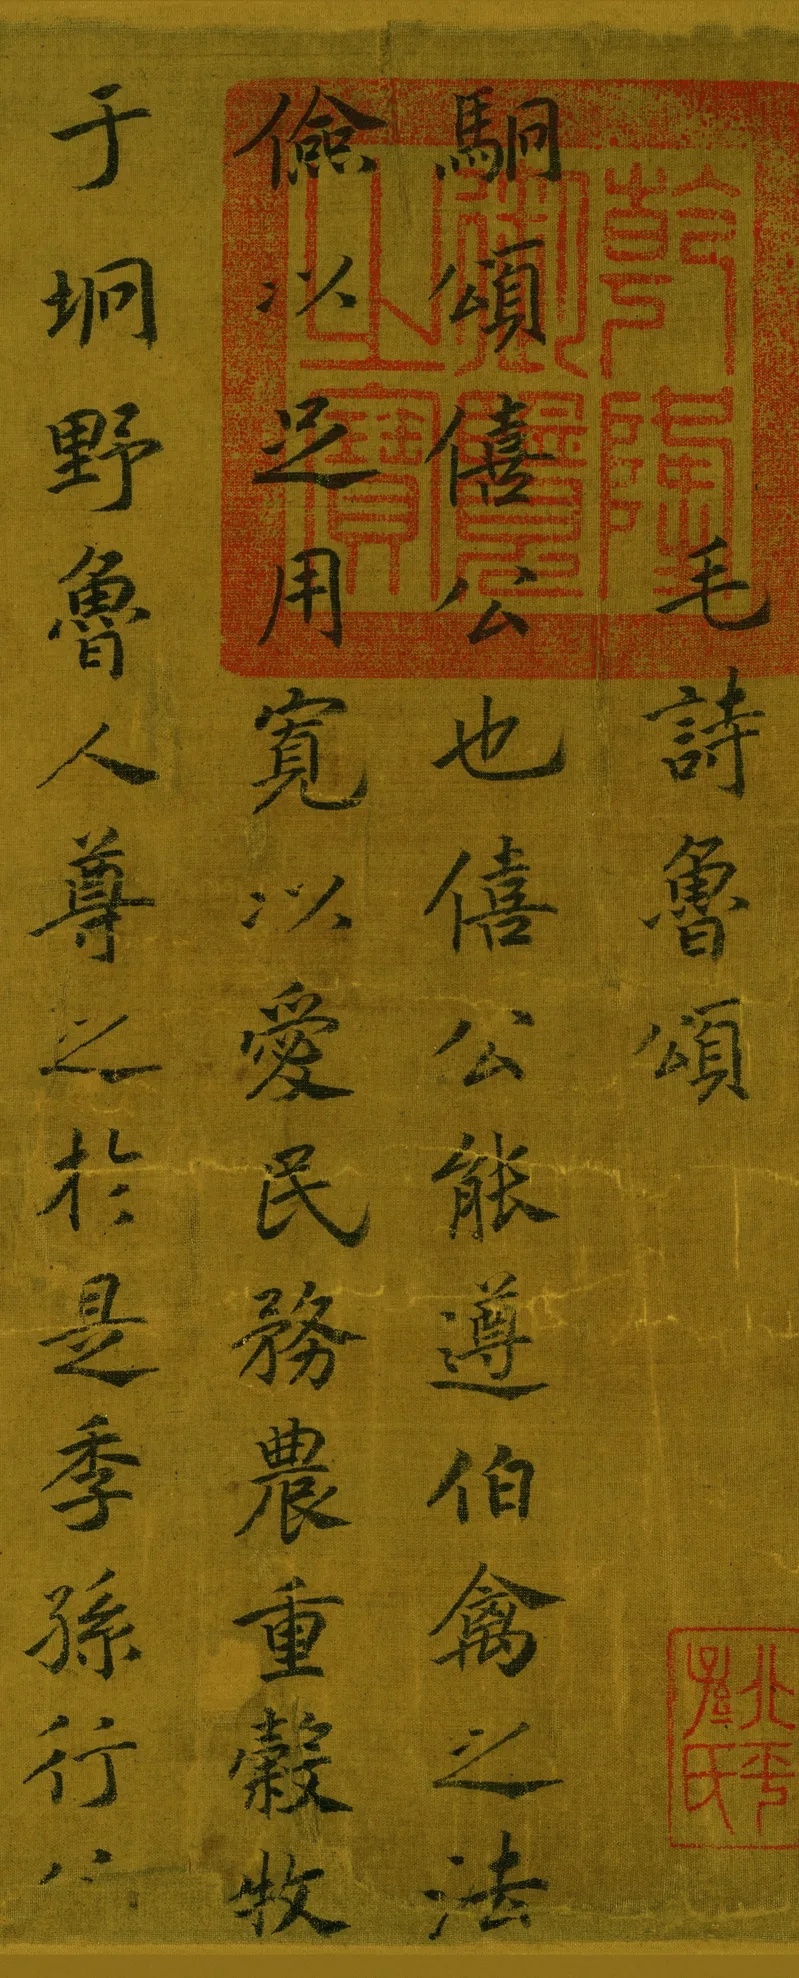 毛詩魯頌
駉頌僖公也僖公能遵伯禽之法
儉以足用寬以愛民務農重穀牧
于坰野魯人尊之於是季孫行
乾隆御覽之寶
北平孫氏